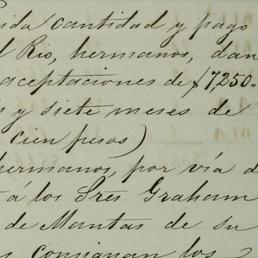 nda cantidad y pago
l Rio, hermanos, dan
aceptaciones de $7,250.
s y siete meses de
cien pesos)
hermanos, por via d
t á los Sres Graham
de Mantas de su
consignan los